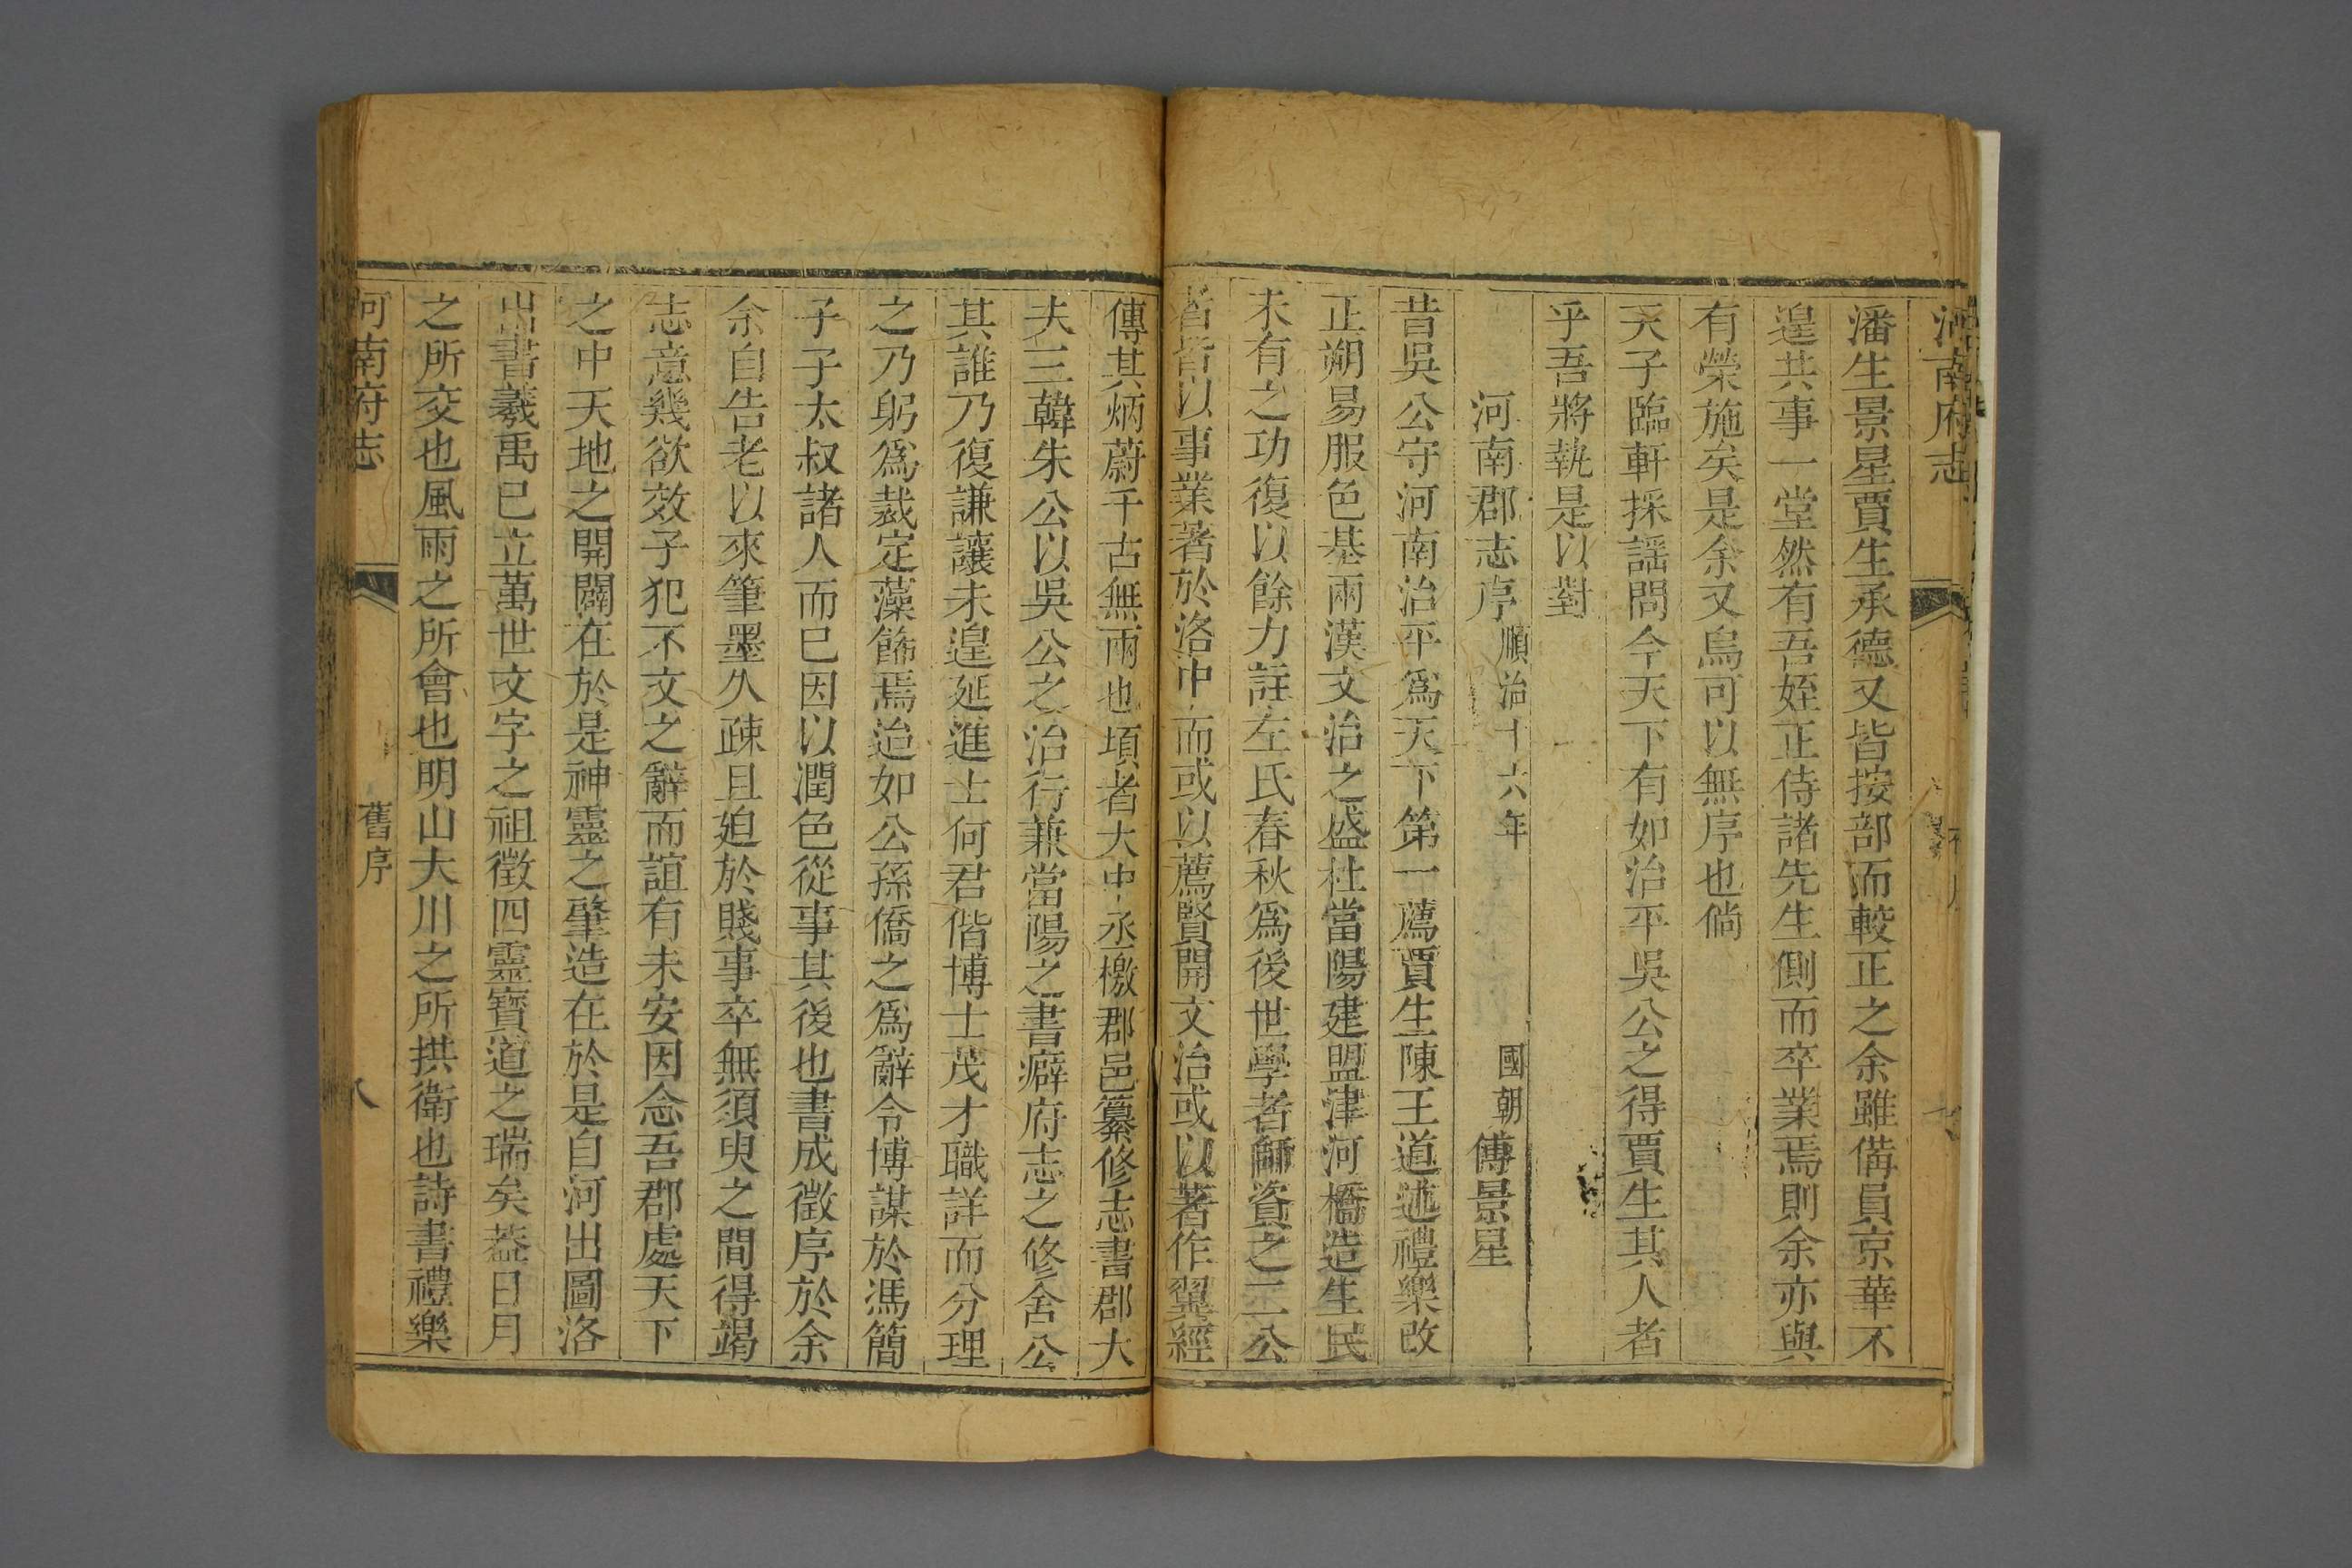 河南府志
潘生景星賈生承德又皆按部而較正之余雖偹員京華不
遑共事一堂然有吾姪正侍諸先生側而卒業焉則余亦與
有榮施矣是余又烏可以無序也倘
天子臨軒採謡問今天下有如治平吳公之得賈生其人者
乎吾將執是以對
河南郡志序 順治十六年 國朝 傅景星
昔吳公守河南治平爲天下第一薦賈生陳王道述禮樂改
正朔易服色基兩漢文治之盛杜當陽建盟津河橋造生民
未有之功復以餘力註左氏春秋爲後世學者師資之二公
者皆以事業著於洛中而或以薦賢開文治或以著作翼經
傳其炳蔚千古無兩也頃者大中丞檄郡邑纂修志書郡大
夫三韓朱公以吳公之治行兼當陽之書癖府志之修舍公
其誰乃復謙讓未遑延進士何君偕博士茂才職詳而分理
之乃躬爲裁定藻餙焉迨如公孫僑之爲辭令博謀於馮簡
子子太叔諸人而已因以潤色從事其後也書成徵序於余
余自告老以來筆墨久疎且廹於賤事卒無須臾之間得竭
志意幾欲效子犯不文之辭而誼有未安因念吾郡處天下
之中天地之開闢在於是神靈之肇造在於是自河出圖洛
出書羲禹已立萬世文字之祖徵四靈寶道之瑞矣葢日月
之所交也風雨之所會也明山大川之所拱衛也詩書禮樂
河南府志 舊序 八